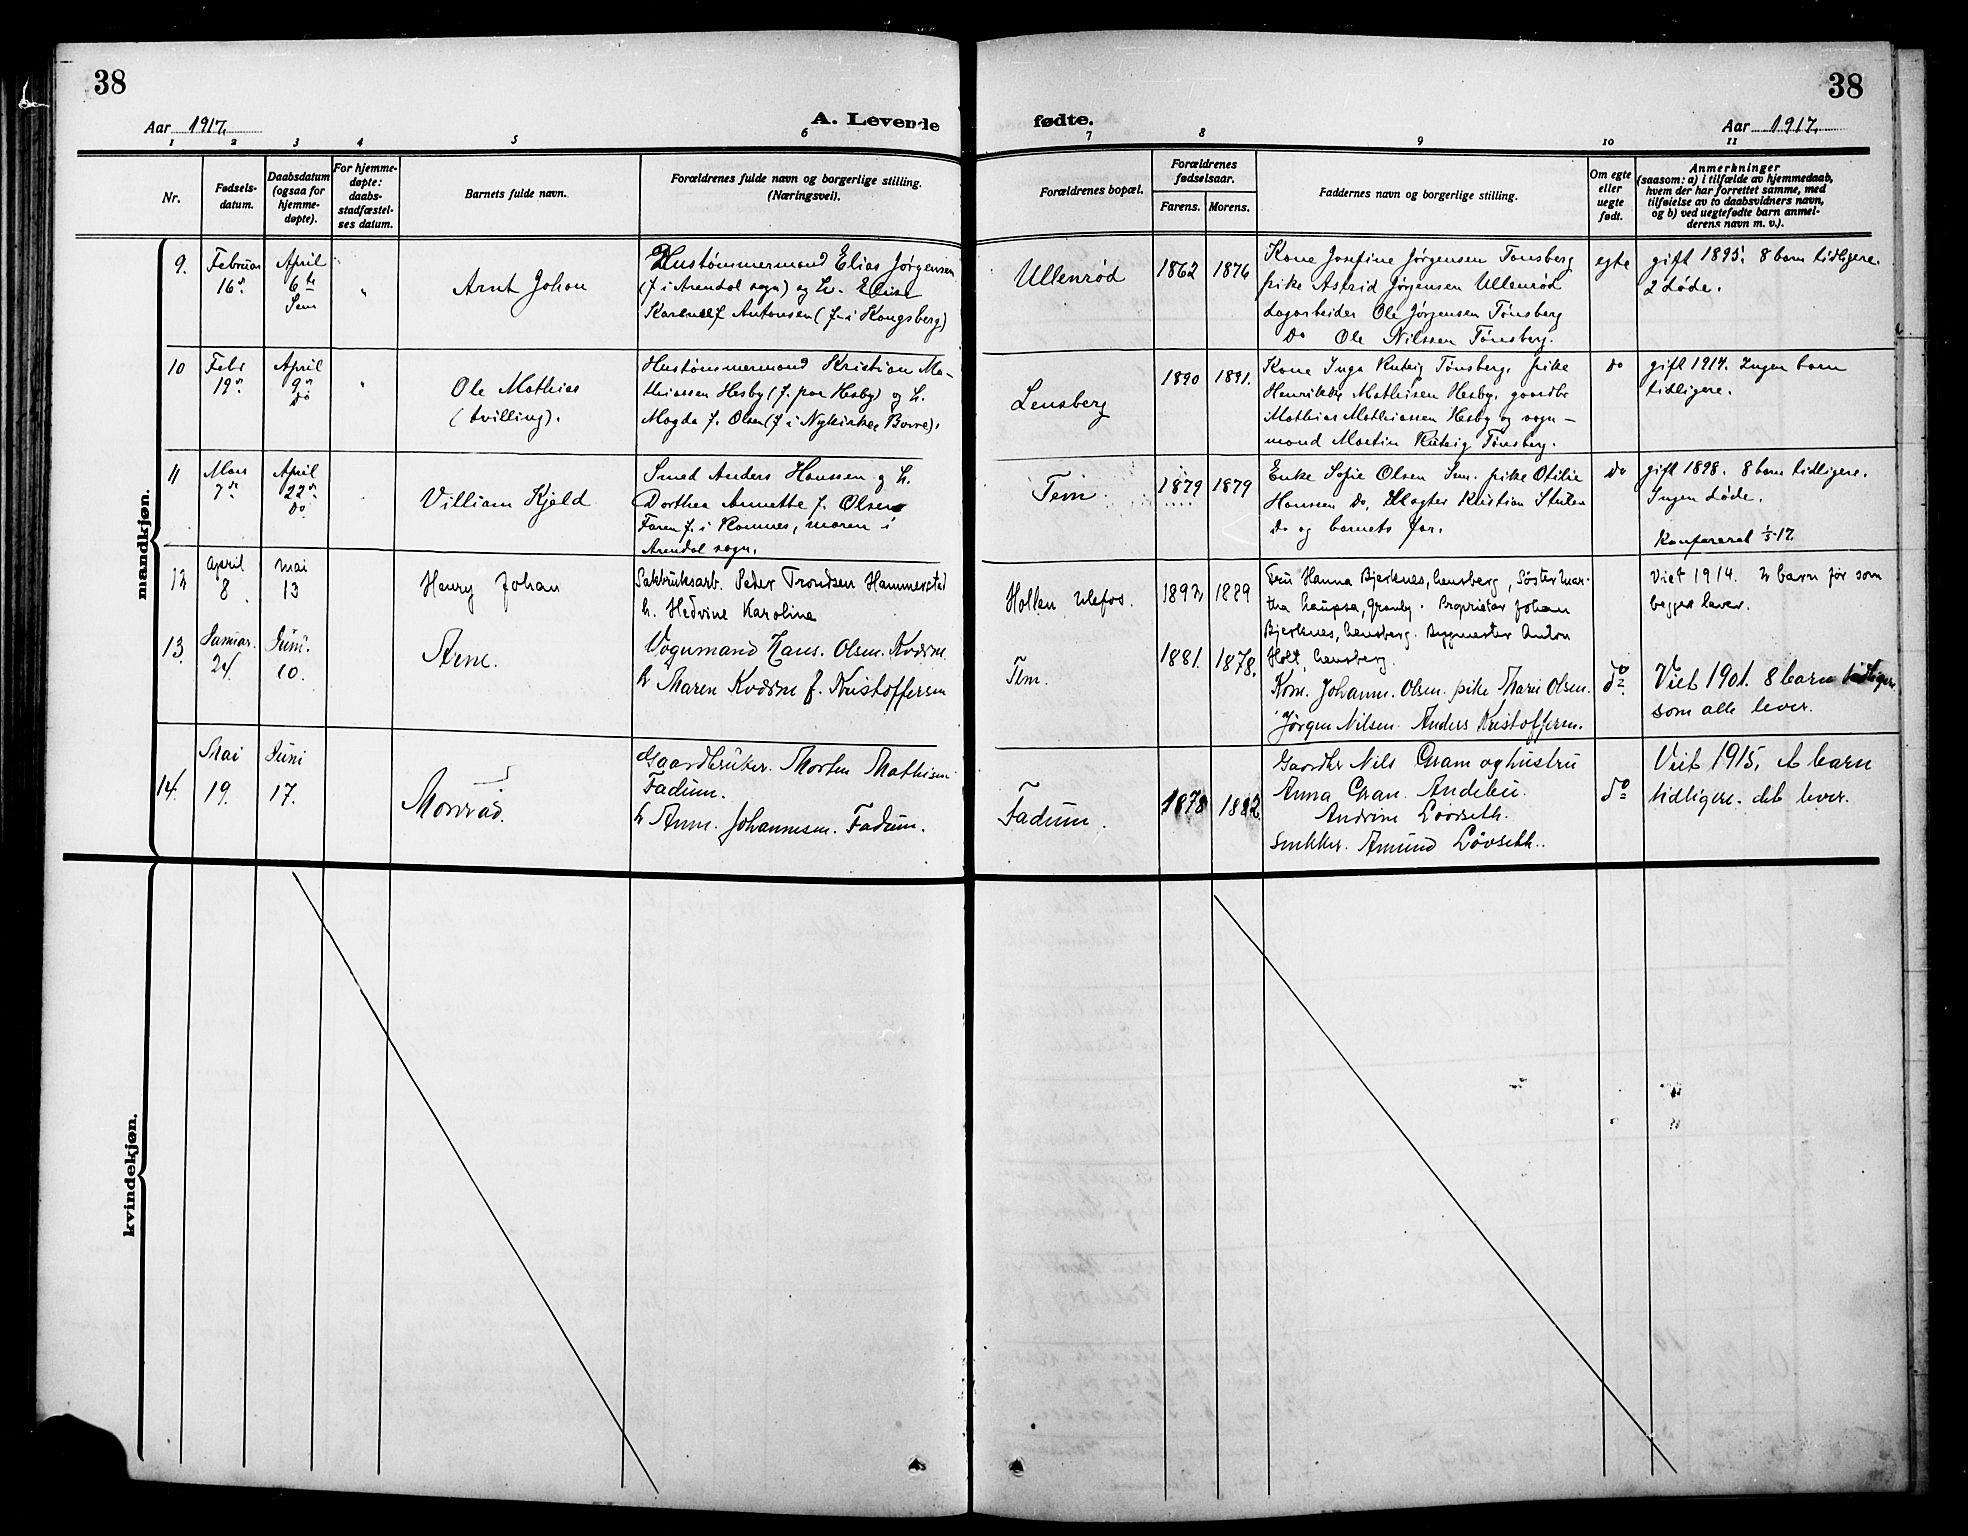 38
38
Aar 1917.
A. Levende
fødte.
Aar 1917.
1
2
3
4
5
6
7
8
9
10
11
Nr.
Fødsels-
datum.
Daabsdatum
(ogsaa for
hjemme-
døpte).
For hjemme-
døpte:
daabs-
stadfæstel-
ses datum.
Barnets fulde navn.
Forældrenes fulde navn og borgerlige stilling.
(Næringsvei).
Forældrenes bopæl.
Forældrenes
fødselsaar.
Farens. Morens.
Faddernes navn og borgerlige stilling.
Om egte
eller
uegte
født.
Anmerkninger
(saasom: a) i tilfælde av hjemmedaab,
hvem der har forrettet samme, med
tilføielse av to daabsvidners navn,
og b) ved uegtefødte barn anmel-
derens navn m. v.).
mandkjøn.
9.
Februar
16de
April
6te
Sem
"
Arnt Johan
Hustømmermand Elias Jørgensen
(f. i Arendal sogn) og h. Elise
Karense f. Antonsen (f. i Kongsberg)
Ullenrød
1862
1876
Kone Josefine Jørgensen Tønsberg
pike Astrid Jørgensen Ullenrød
Ole Jørgensen Tønsberg
Do Ole Nilssen Tønsberg.
egte
gift 1895. 8 barn tidligere.
2 døde.
10
Febr
19de
April
9de
Do
"
Ole Mathias
(tvilling).
Hustømmermand Kristian Ma-
thiassen Hesby (f. paa Hesby) og h.
Magda f. Olsen (f. i Nykirke Borre).
Lensberg
1890
1891.
Kone Inga Tønsberg, pike
Henrikke Mathisen Hesby, gaardbr
Mathias Mathiassen Hesby og vogn-
mand Martin Tønsberg.
Do
gift 1914. Ingen barn
tidligere.
11
Mars
7de
April
22de
Do
Villiam Kjeld
Smed Anders Hanssen og h.
Dorthea Annette f. Olsen
Faren f. i Ramnes, moren i
Arendal sogn.
Tem.
1879
1879
Enke Sofie Olsen Sem. pike Otilie
Hanssen Do, Slagter Kristian
Do og barnets far.
Do
gift 1898. 8 barn tidligere.
Ingen døde.
Konfereret 1/5-17
12
April
8
Mai
13
Henry Johan
Sakbruksarb. Peder Trondsen Hammerstad
h. Hedvine Karoline
Hollen Ulefos.
1892
1889
Fru Hanna Bjerknes, Lensberg, Søster Mar-
tha Granly. Proprietær Johan
Bjerknes, Lensberg. Bygmester Anton
Holt, Lensberg.
Viet 1914. 2 barn før som
begge lever.
13
Januar.
24
Juni.
10.
Arne.
Vognmand Hans. Olsen. Kværne
h Maren Kværne f. Kristoffersen
Tem.
1881.
1878.
Kone. Johanne. Olsen. pike Marie Olsen.
Jørgen Nilsen. Anders Kristoffersen.
do
Viet 1901. 8 barn tidligere
som alle lever.
14.
Mai
19.
Juni
17.
Monrad.
Gaardbruker. Morten Mathisen
Fadum.
h Anne. Johannesen. Fadum.
Fadum.
1878
1882.
Gaardbr Nils Gram og hustru
Anna Gran. Andebu.
Andrine Løvseth.
Snekker. Amund Løvseth.
do
Viet 1915. et barn
tidligere. det lever.
kvindekjøn.